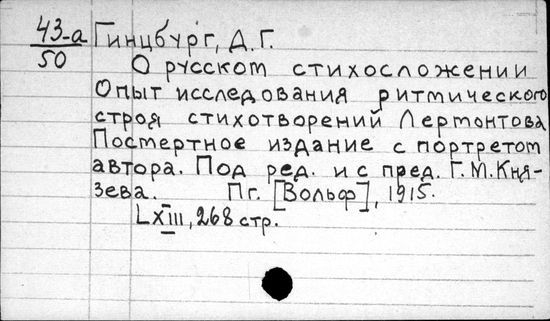 43-а
50
Гинцбург, Д. Г.
О русском стихосложении
Опыт исследования ритмического
строя стихотворений Лермонтова
Посмертное издание с портретом
автора. Под ред. и с пред. Г. М. Кня-
зева. Пг. [Вольф], 1915.
LXIII, 268 стр.